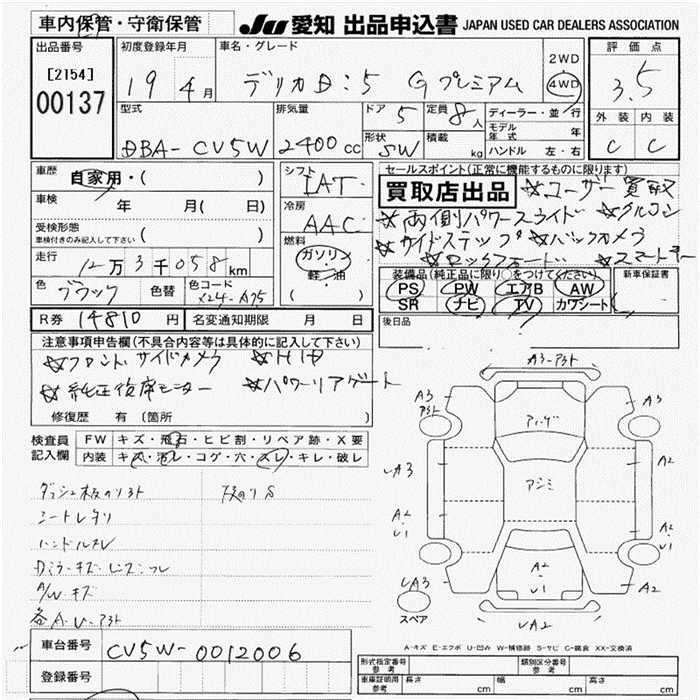 車内保管・守衛保管
JU 愛知 出品申込書 JAPAN USED CAR DEALERS ASSOCIATION
出品番号
[2154]
00137
初度登録年月
19 4月
車名・グレード
デリカD:5 Gプレミアム
2WD
4WD
評価点
3.5
外装 内装
C C
型式
DBA-CV5W
排気量
2400cc
ドア 5
形状 SW
定員 8人
積載 kg
ディーラー・並行
モデル年式 年
ハンドル 左・右
車歴 自家用・( )
車検 年 月( 日)
受検形態
車検付きのみ記入して下さい ( )
走行 12万3千058km
色 ブラック 色替 色コード X24-A75
シフト IAT
冷房 AAC
燃料
ガソリン
軽油
( )
セールスポイント(正常に機能するものに限ります)
買取店出品 ☆ユーザー買取
☆両側パワースライド ☆クルコン
☆サイドステップ ☆バックカメラ
☆ロックフォード ☆スマートキー
装備品(純正品に限り○をつけてください)
PS PW エアB AW
SR ナビ TV カワシート
新車保証書
( )
R券 14810円 名変通知期限 月 日
後日品
注意事項申告欄(不具合内容等は具体的に記入して下さい)
☆フロントサイドカメラ ☆HID
☆純正後席モニター ☆パワーリアゲート
修復歴 有 〔箇所 〕
検査員
記入欄
FW キズ・飛石・ヒビ割・リペア跡・X要
内装 キズ・汚レ・コゲ・穴・スレ・キレ・破レ
シートヘタリ
ハンドルスレ
A/Wキズ
各A・U・アト
A3・アト
A3
アト
A3
UA3
A2
A2
・
U1
A2
・
U1
アミ
A2
・
U1
UA3
A2
UA2
スペア
A-キズ E-エクボ U-凹み W-補修跡 S-サビ C-腐食 XX-交換済
車台番号 CV5W-0012006
登録番号
形式指定番号
参考
類別区分番号
参考
車庫証明用
参考
長さ cm 幅 cm 高さ cm